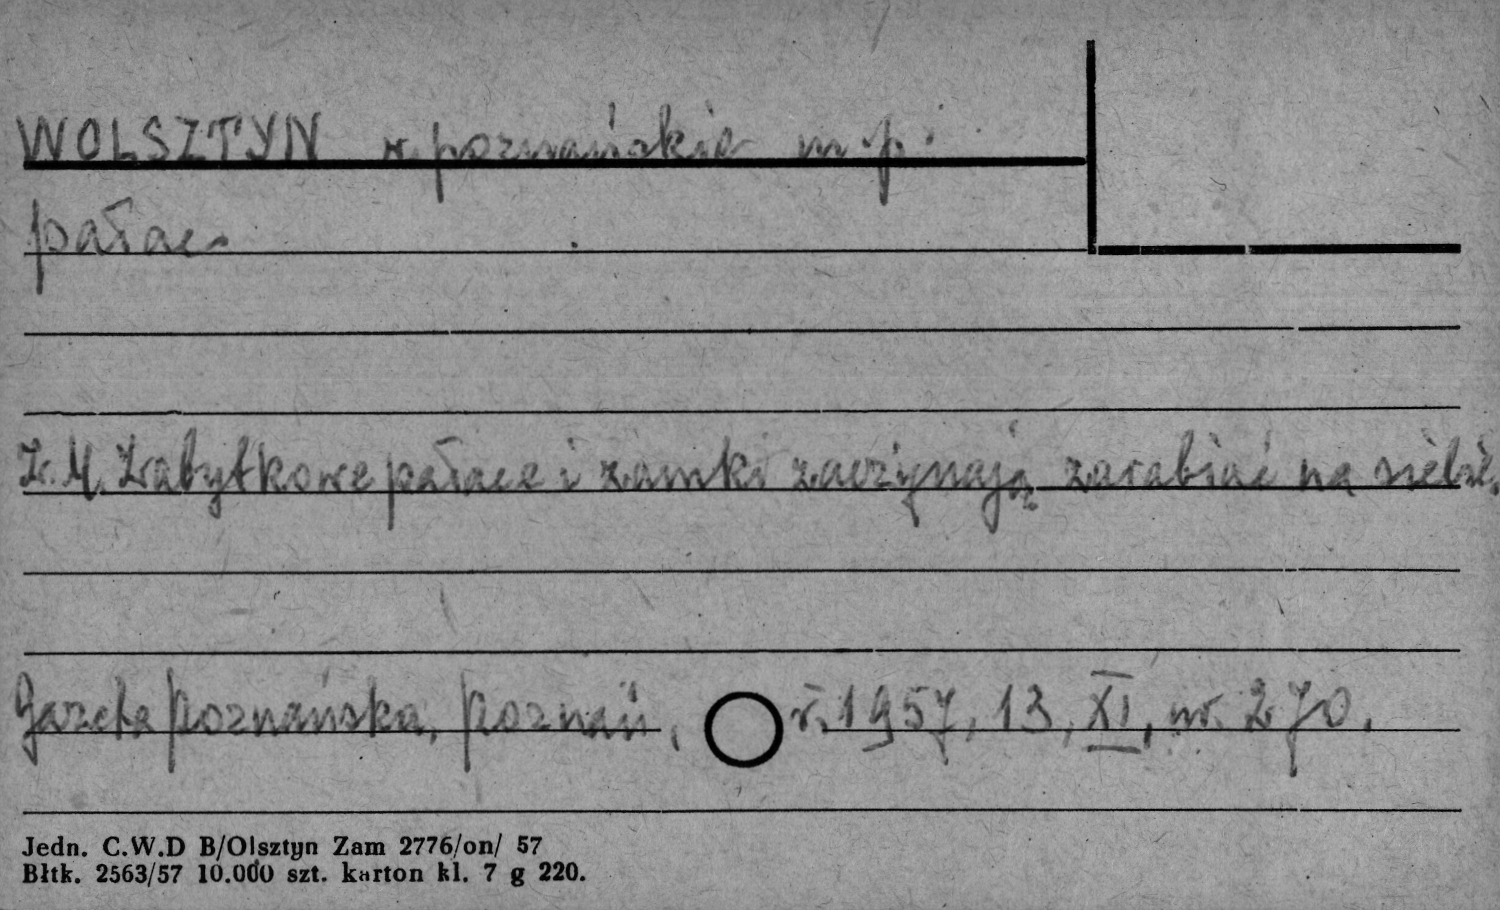 WOLSZTYN w. poznańskie m. p.
pałac
Z. M. Zabytkowe pałace i zamki zaczynają zarabiać na siebie.
Gazeta Poznańska, Poznań, r. 1957, 13, XI, nr. 270.
Jedn. C.W.D B/Olsztyn Zam 2776/on/ 57
Błtk. 2563/57 10.000 szt. karton kl. 7 g 220.